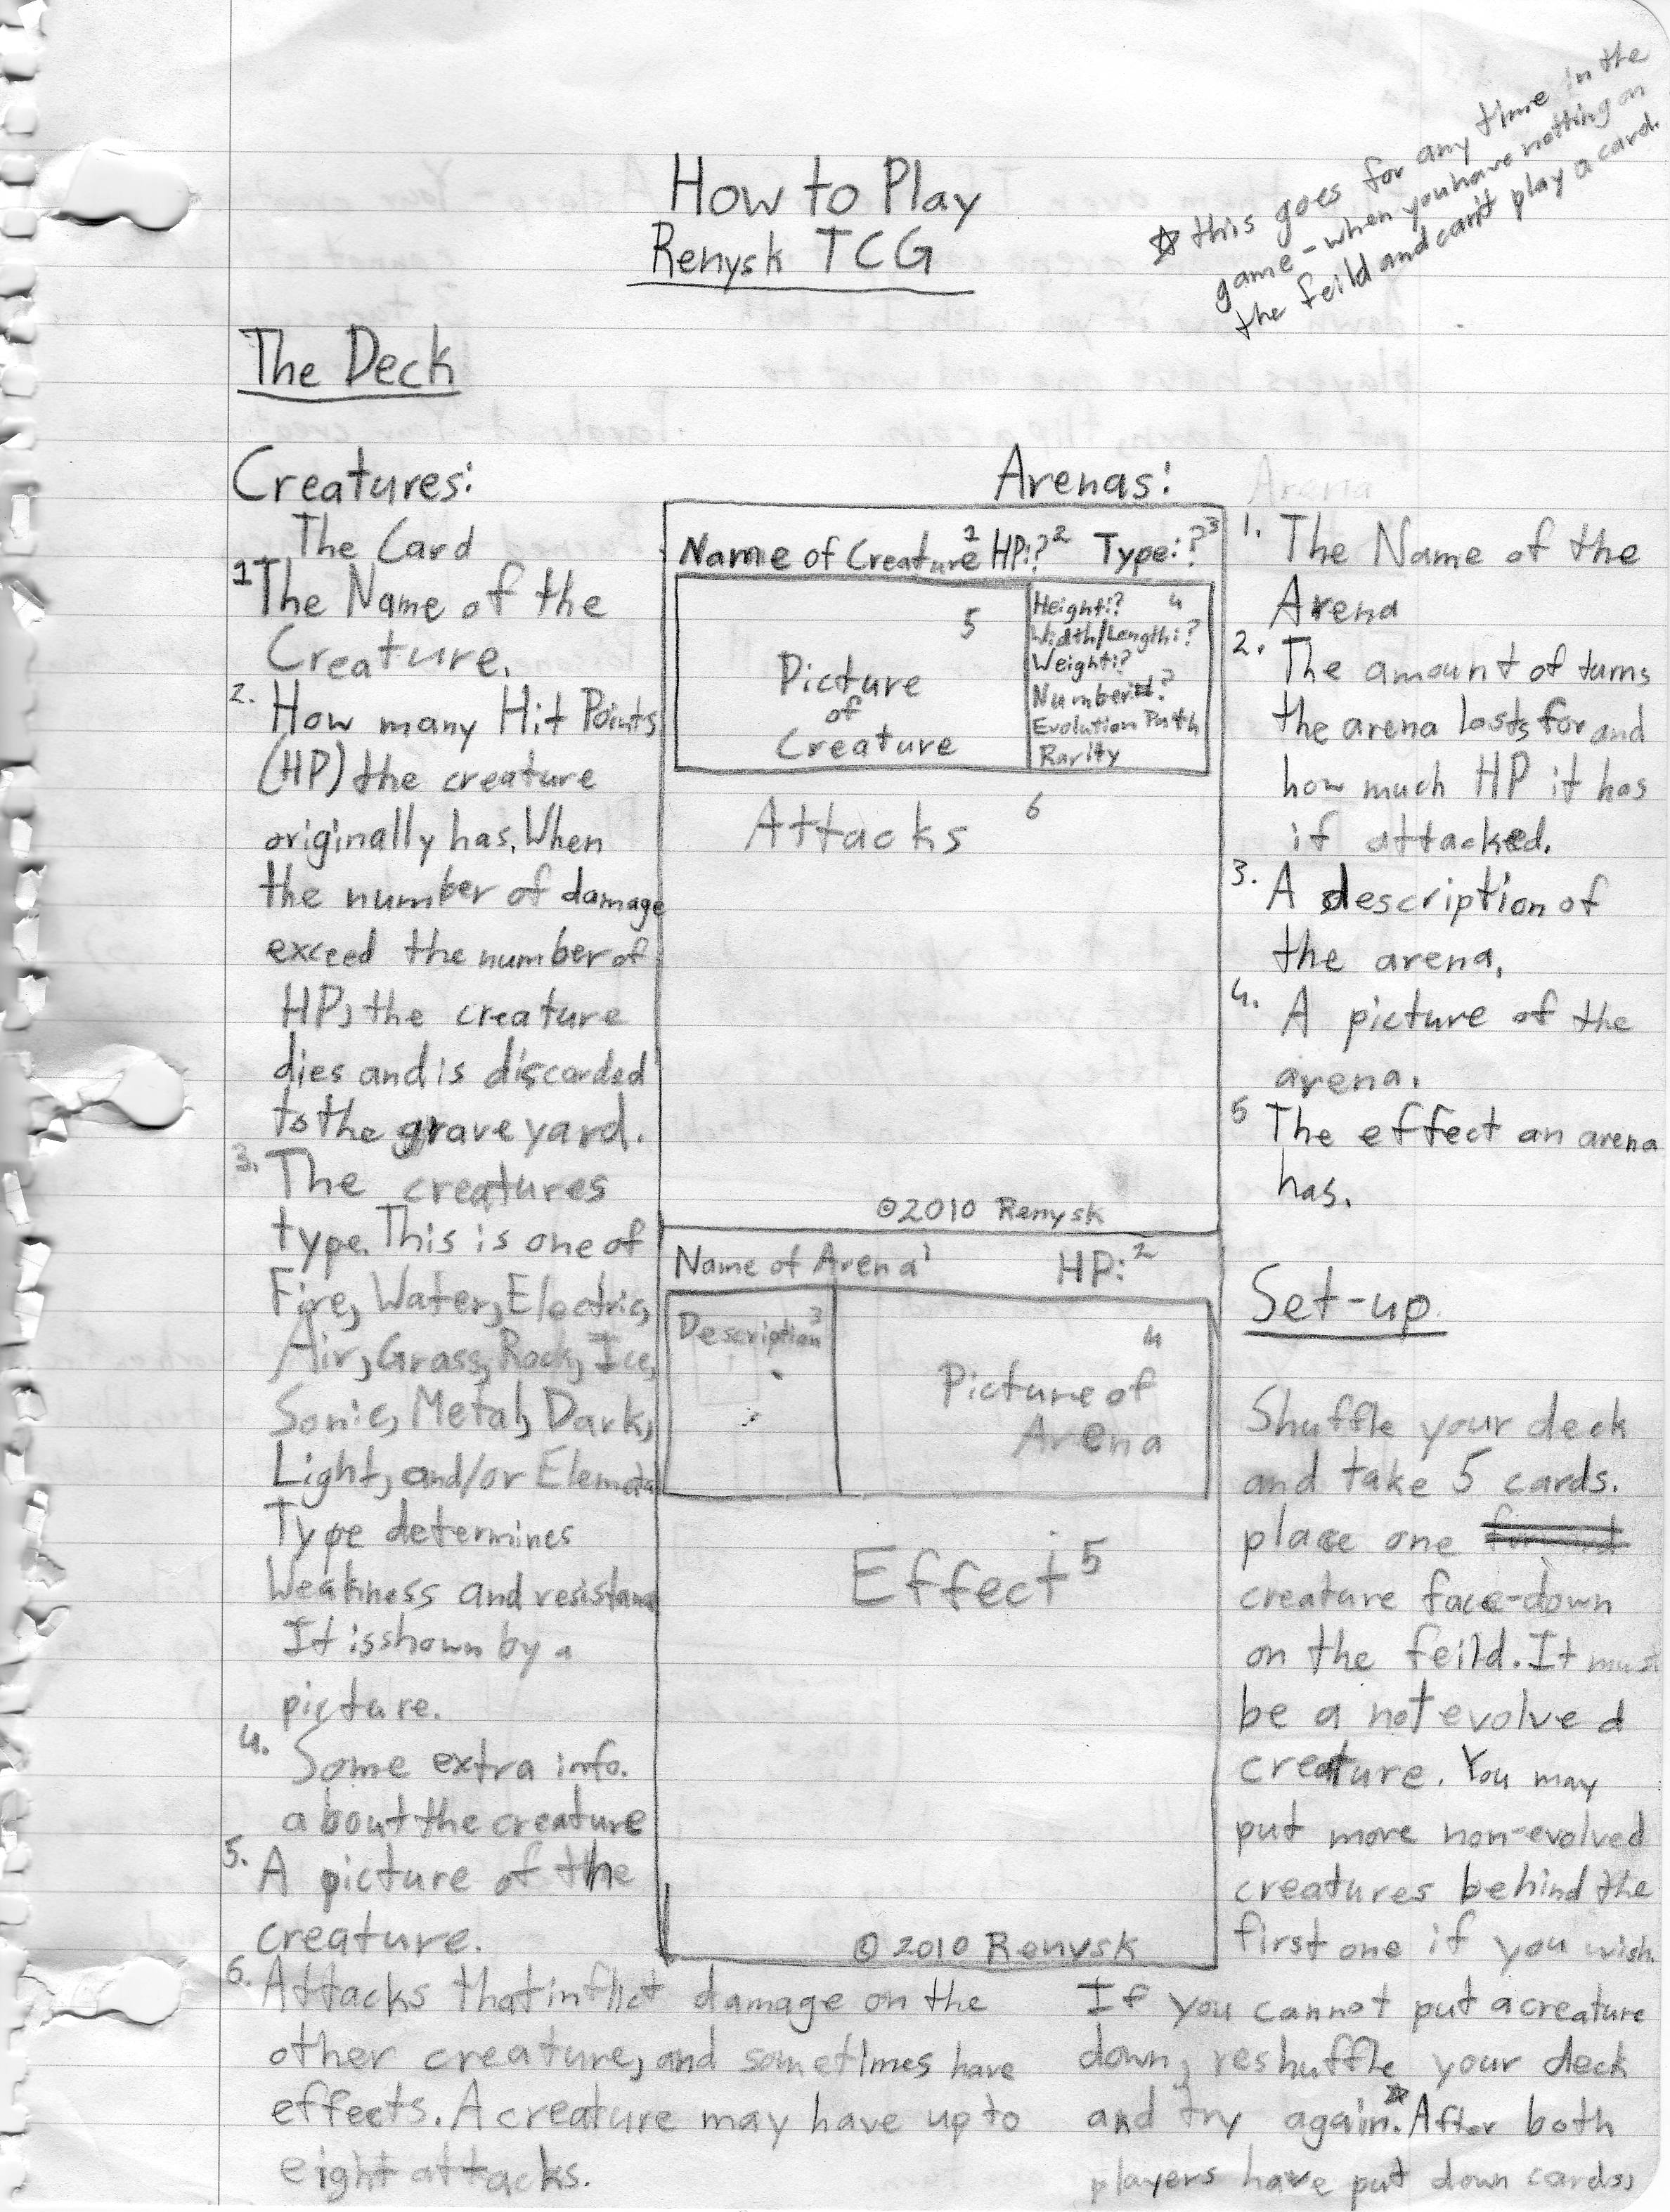 How to Play
Renysk TCG
☆ this goes for any time in the
game - when you have notting on
the feild and can't play a card.
The Deck
Creatures:
The Card
1 The Name of the
Creature.
2. How many Hit Points
(HP) the creature
originally has. When
the number of damage
exceed the number of
HP, the creature
dies and is discarded
to the graveyard.
3. The creatures
type. This is one of
Fire, Water, Electric,
Air, Grass, Rock, Ice,
Sonic, Metal, Dark,
Light, and/or
Type determines
Weakness and
It is shown by a
picture.
4. Some extra info.
about the creature
5. A picture of the
creature.
6. Attacks that inflict damage on the
other creature, and sometimes have
effects. A creature may have up to
eight attacks.
Arenas:
Name of Creature 1 HP:? 2 Type:? 3
5
Picture
of
Creature
Height:? 4
Width/Length:?
Weight:?
Number#:?
Evolution Path
Rarity
Attacks 6
©2010 Renysk
Name of Arena 1 HP: 2
Description 3
4
Picture of
Arena
Effect 5
© 2010 Renysk
Arena
1. The Name of the
Arena
2. The amount of turns
the arena lasts for and
how much HP it has
if attacked.
3. A description of
the arena.
4. A picture of the
arena.
5 The effect an arena
has.
Set-up
Shuffle your deck
and take 5 cards.
place one
creature face-down
on the feild. It must
be a not evolved
creature. You may
put more non-evolved
creatures behind the
first one if you wish.
If you cannot put a creature
down, reshuffle your deck
and try again.☆ After both
players have put down cards,